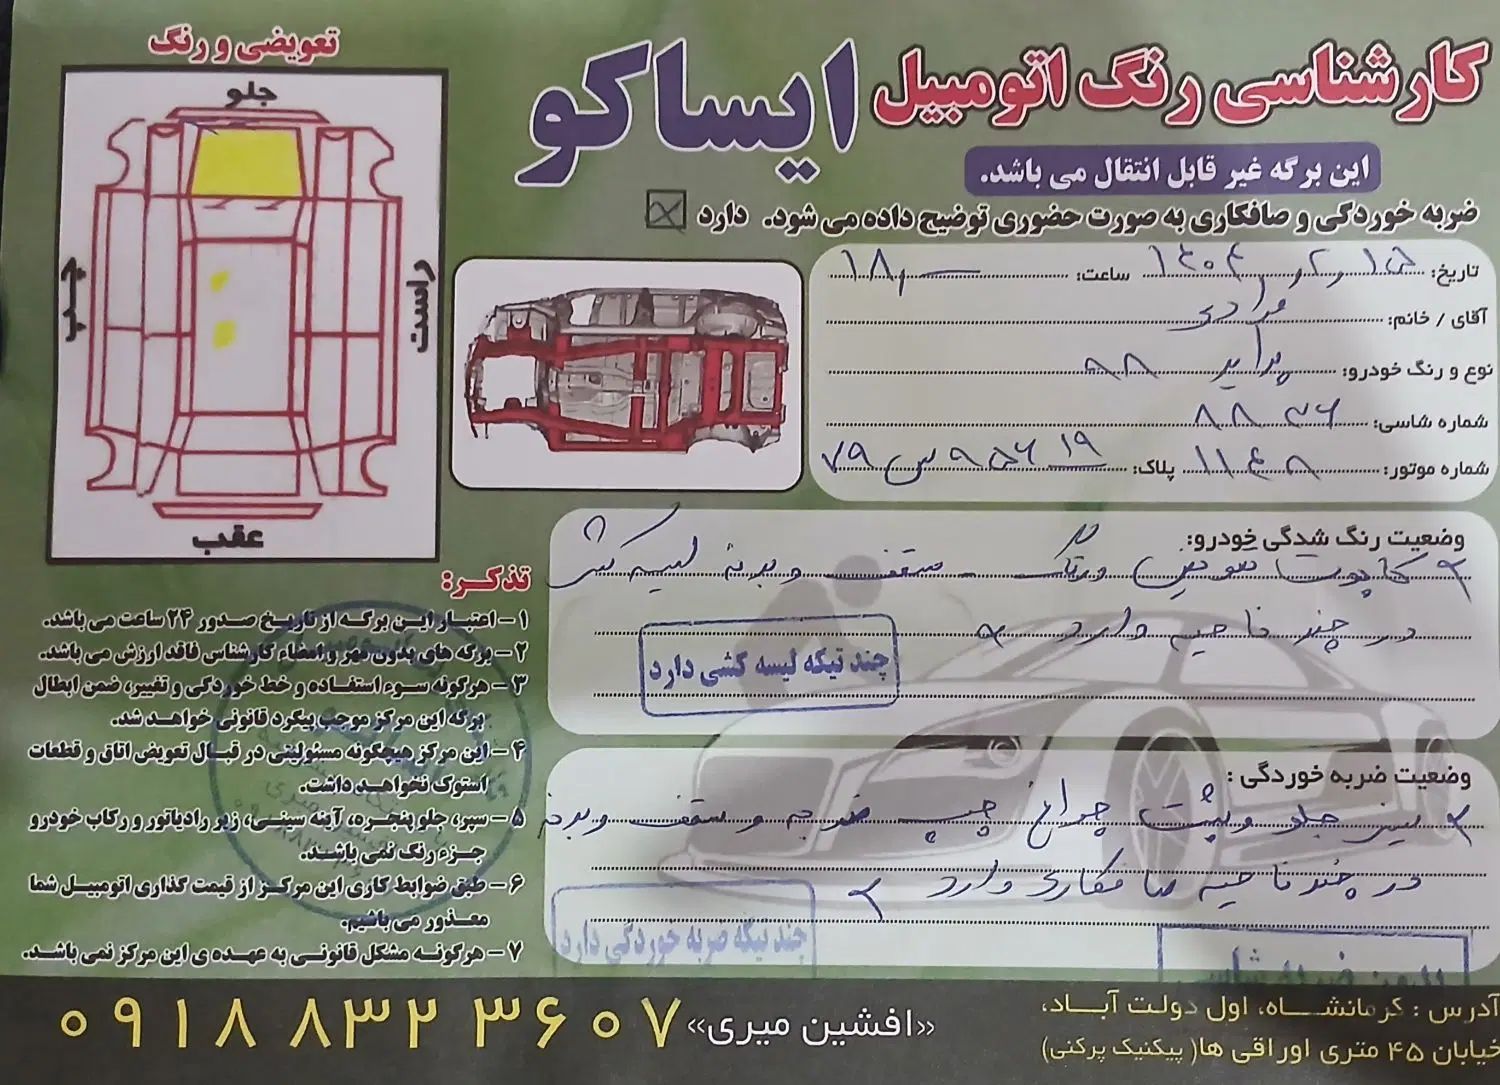 کارشناسی رنگ اتومبیل ایساکو
این برگه غیر قابل انتقال می باشد.
ضربه خوردگی و صافکاری به صورت حضوری توضیح داده می شود. دارد
تعویضی و رنگ
جلو
چپ
راست
عقب
تاریخ: ۱۴۰۴٫۲٫۱۵ ساعت: ۱۸٫
آقای / خانم: مرادی
نوع و رنگ خودرو: پراید ۹۸
شماره شاسی: ۸۸۳۶
شماره موتور: ۱۱۴۸ پلاک: ۱۹ ۹۵۶س۷۹
وضعیت رنگ شدگی خودرو:
کاپوت تعویض ورنگ - سقف و بدنه لیسه کشی
در چند ناحیه دارد
چند تیکه لیسه کشی دارد
وضعیت ضربه خوردگی :
سینی جلو و پشت چراغ چپ ضربه و سقف و بدنه
در چند ناحیه صافکاری دارد
چند تیکه ضربه خوردگی دارد
بدون ضربه شاسی
تذکر:
۱ – اعتبار این برگه از تاریخ صدور ۲۴ ساعت می باشد.
۲ – برگه های بدون مهر و امضاء کارشناس فاقد ارزش می باشد.
۳ – هرگونه سوء استفاده و خط خوردگی و تغییر، ضمن ابطال
برگه این مرکز موجب پیگرد قانونی خواهد شد.
۴ – این مرکز هیچگونه مسئولیتی در قبال تعویض اتاق و قطعات
استوک نخواهد داشت.
۵ – سپر، جلو پنجره، آینه سینی، زیر رادیاتور و رکاب خودرو
جزء رنگ نمی باشند.
۶ – طبق ضوابط کاری این مرکز از قیمت گذاری اتومبیل شما
معذور می باشیم.
۷ – هرگونه مشکل قانونی به عهده ی این مرکز نمی باشد.
آدرس : کرمانشاه، اول دولت آباد،
خیابان ۴۵ متری اوراقی ها( پیکنیک پرکنی)
«افشین میری» ۰۹۱۸ ۸۳۲ ۳۶۰۷